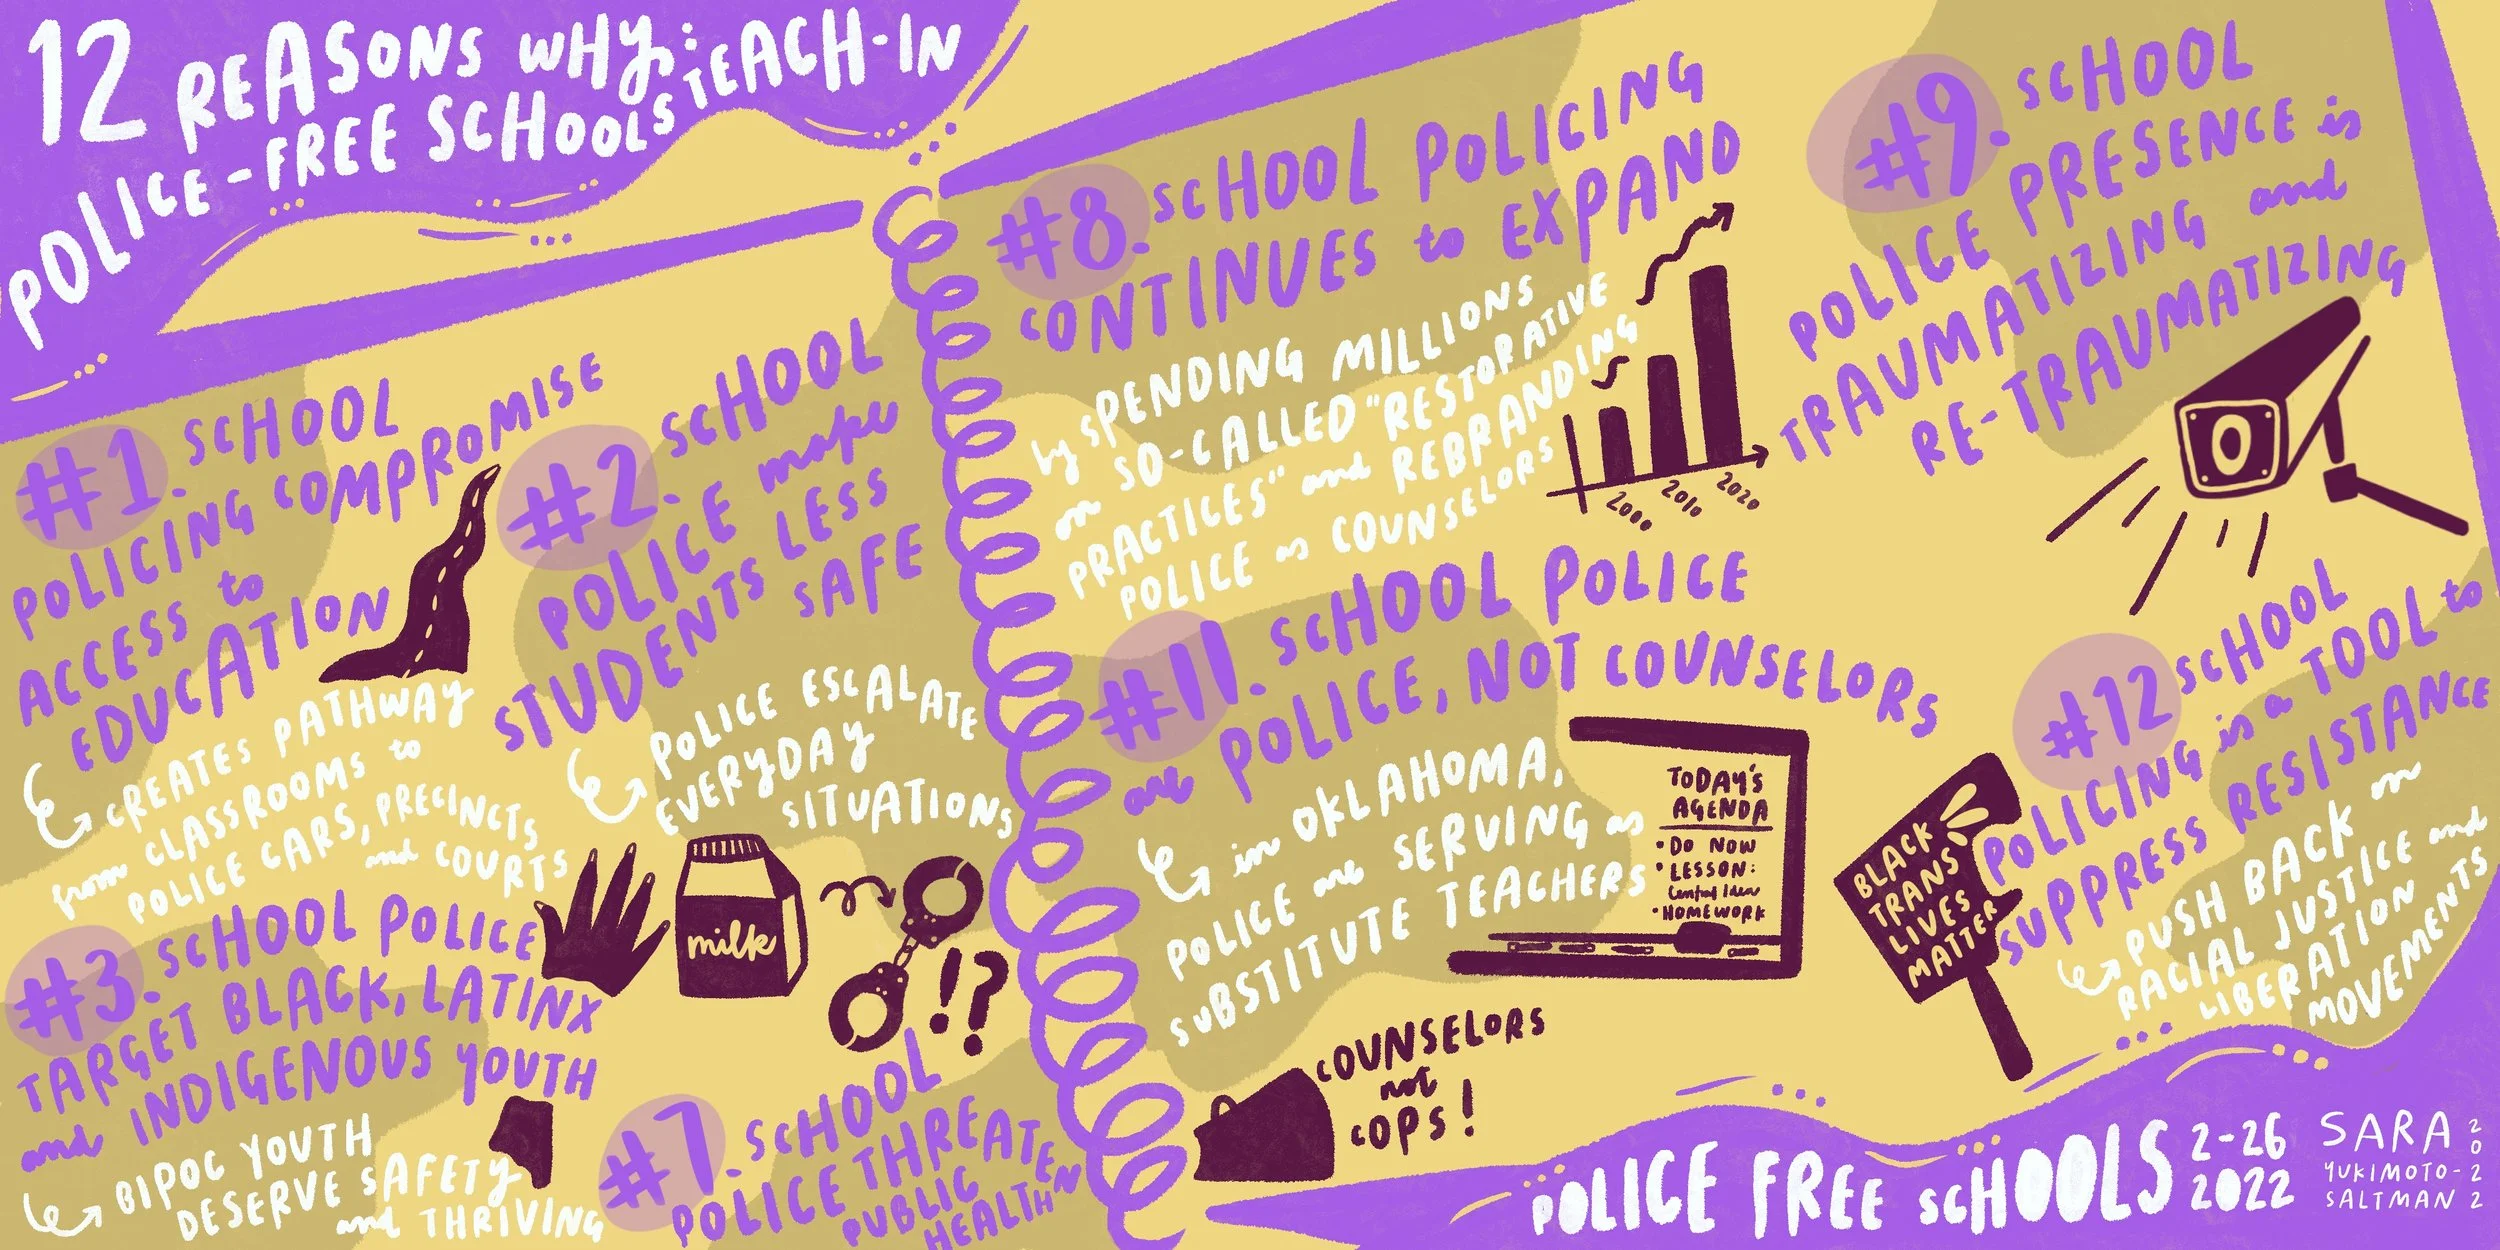 12 REASONS WHY:
POLICE-FREE SCHOOLS TEACH-IN
#1. SCHOOL
POLICING COMPROMISE
ACCESS to
EDUCATION
CREATES PATHWAY
from CLASSROOMS to
POLICE CARS, PRECINCTS
and COURTS
#2. SCHOOL
POLICE make
STUDENTS LESS
SAFE
POLICE ESCALATE
EVERYDAY
SITUATIONS
milk
!?
#3. SCHOOL POLICE
TARGET BLACK, LATINX
and INDIGENOUS YOUTH
BIPOC YOUTH
DESERVE SAFETY
and THRIVING
#7. SCHOOL
POLICE THREATEN
PUBLIC
HEALTH
#8. SCHOOL POLICING
CONTINUES to EXPAND
by SPENDING MILLIONS
on SO-CALLED "RESTORATIVE
PRACTICES" and REBRANDING
POLICE as COUNSELORS
2000 2010 2020
#9. SCHOOL
POLICE PRESENCE is
TRAUMATIZING and
RE-TRAUMATIZING
#11. SCHOOL POLICE
are POLICE, NOT COUNSELORS
in OKLAHOMA,
POLICE are SERVING as
SUBSTITUTE TEACHERS
TODAY'S
AGENDA
• DO NOW
• LESSON:
Central Idea
• HOMEWORK
COUNSELORS
not
COPS!
#12 SCHOOL
POLICING is a TOOL to
SUPPRESS RESISTANCE
PUSH BACK on
RACIAL JUSTICE and
LIBERATION
MOVEMENTS
BLACK
TRANS
LIVES
MATTER
POLICE FREE SCHOOLS
2-26
2022
SARA
YUKIMOTO-
SALTMAN
2022